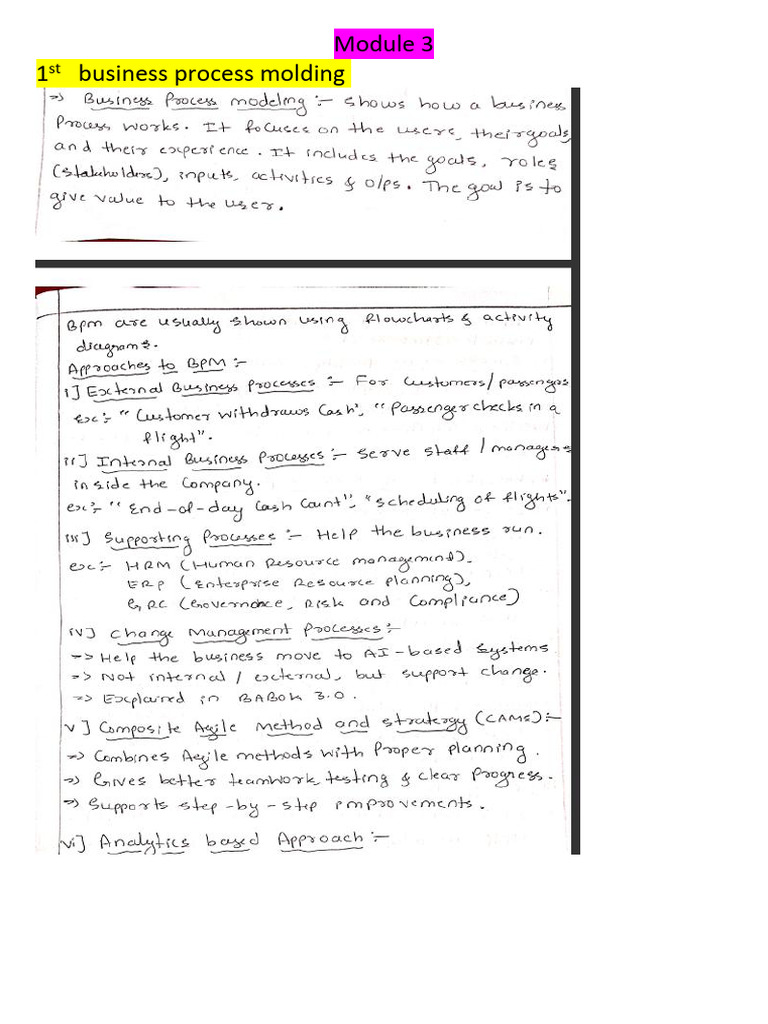 Module 3
1st business process molding
=> Business Process modeling :- shows how a business
Process works. It focuses on the users, their goals,
and their experience. It includes the goals, roles
(stakeholders), inputs, activities & o/ps. The goal is to
give value to the user.
Bpm are usually shown using flowcharts & activity
diagrams.
Approaches to BPM :-
i] External Business Processes :- For customers/passengers
ex:- "Customer withdraws cash", "Passenger checks in a
flight".
ii] Internal Business Processes :- Serve staff / managers
inside the company.
ex:- "End-of-day Cash Count", "scheduling of flights".
iii] Supporting Processes :- Help the business run.
ex:- HRM (Human Resource management),
ERP (Enterprise Resource planning),
GRC (Governance, Risk and Compliance)
iv] Change Management Processes :-
=> Help the business move to AI-based systems
=> Not internal / external, but support change.
=> Explained in BABOK 3.0.
v] Composite Agile Method and stratergy (CAMS) :-
=> Combines Agile methods with Proper planning.
=> Gives better teamwork, testing & clear Progress.
=> Supports step-by-step improvements.
vi] Analytics based Approach :-